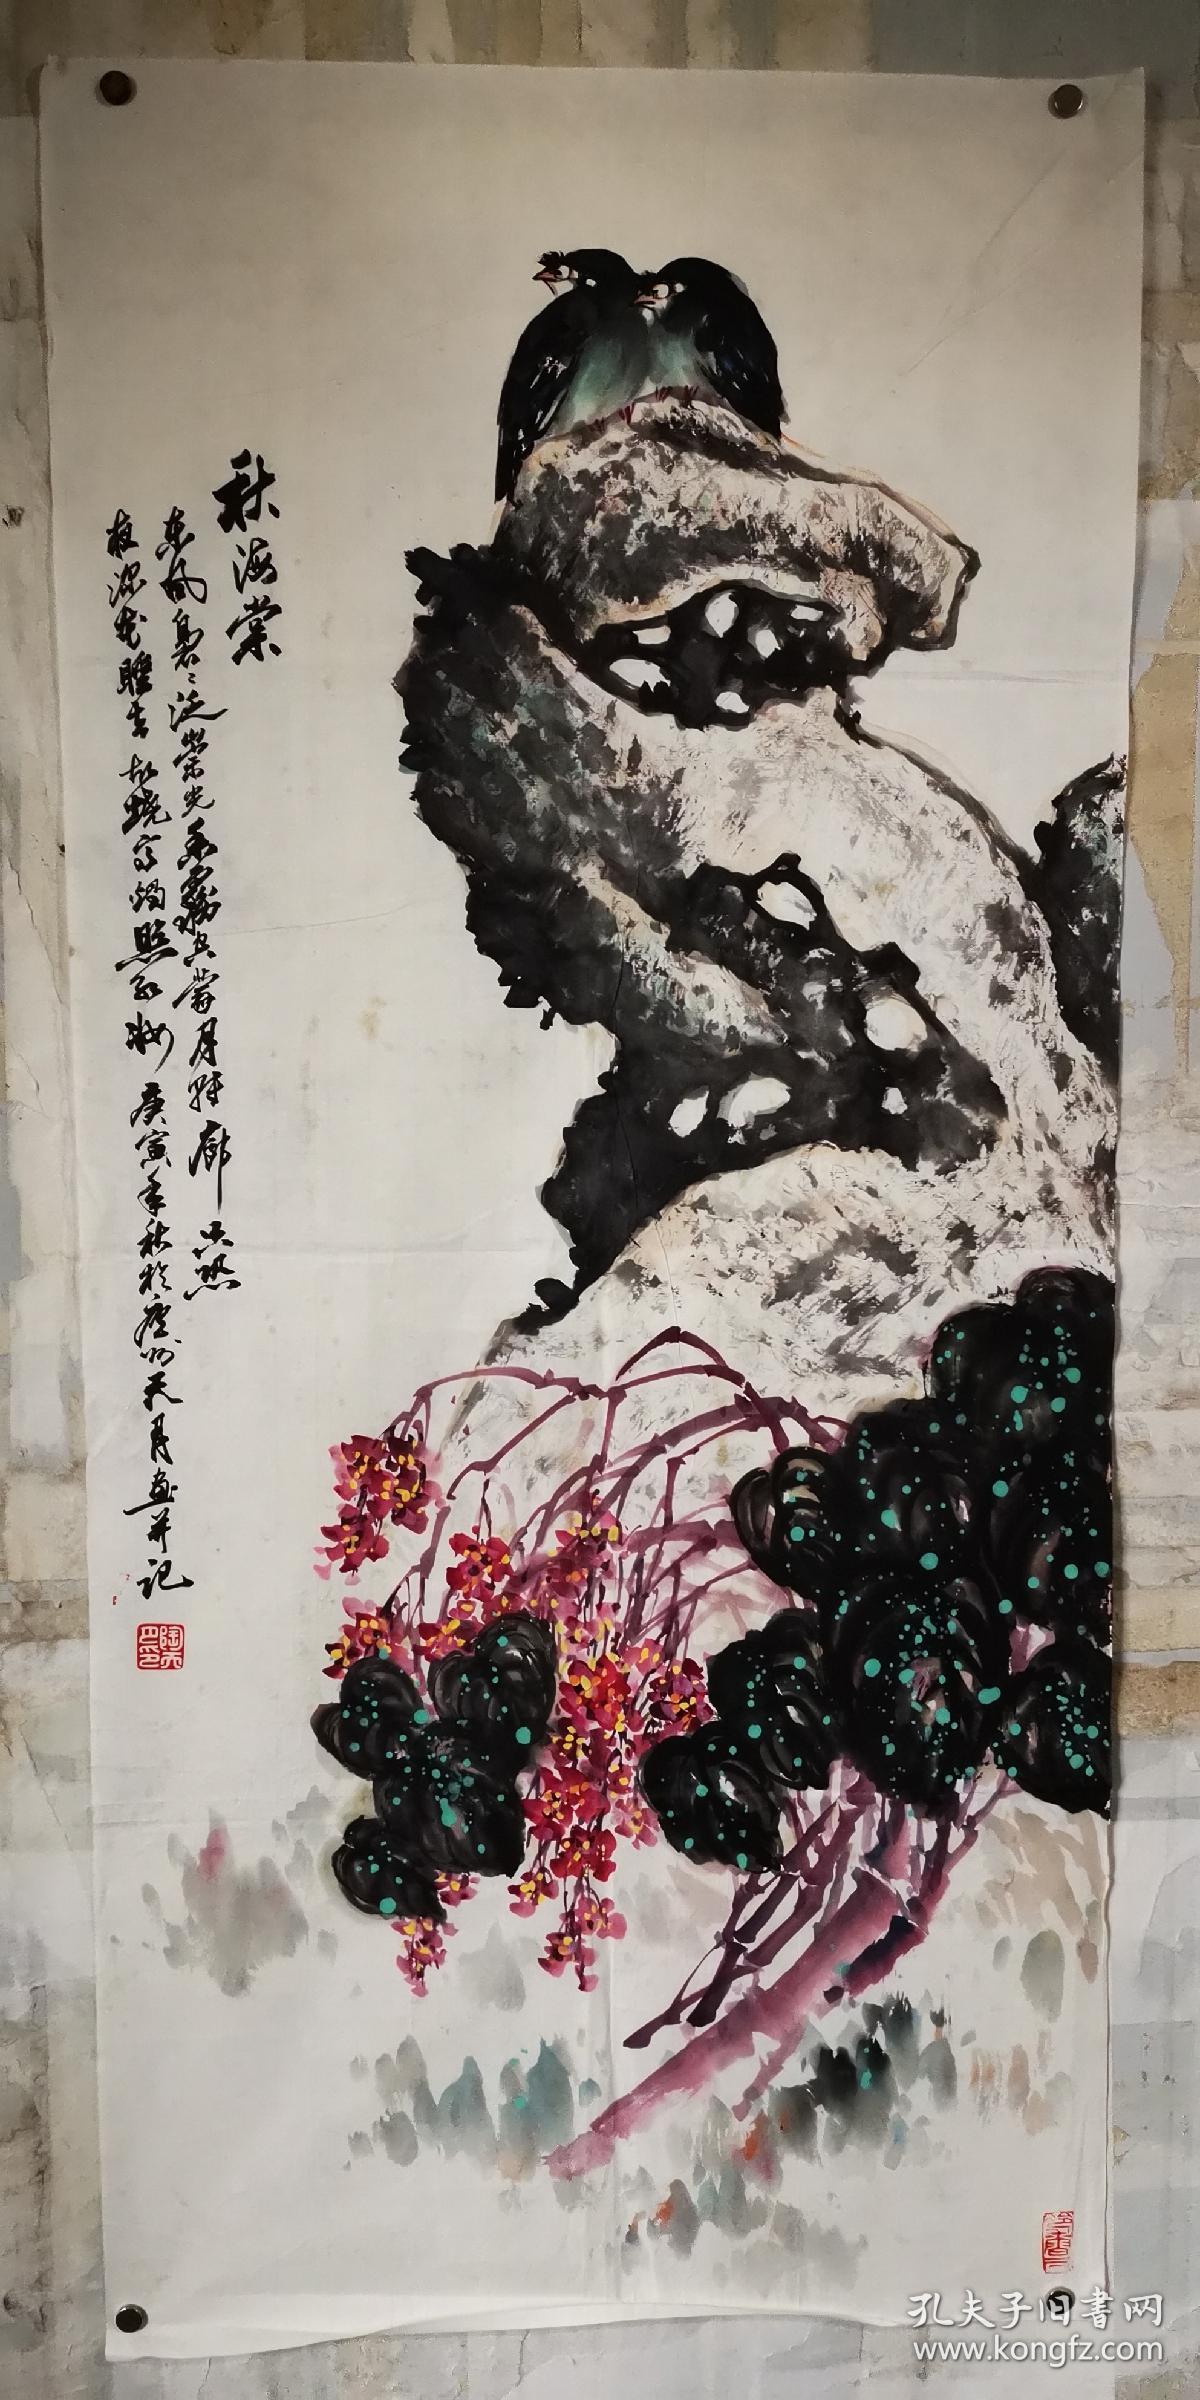 秋海棠
东风袅〻泛崇光香雾空蒙月转廊只恐
夜深花睡去故烧高烛照红妆 庚寅年秋於州天月画并记
陶天月印
孔夫子旧書网
www.kongfz.com